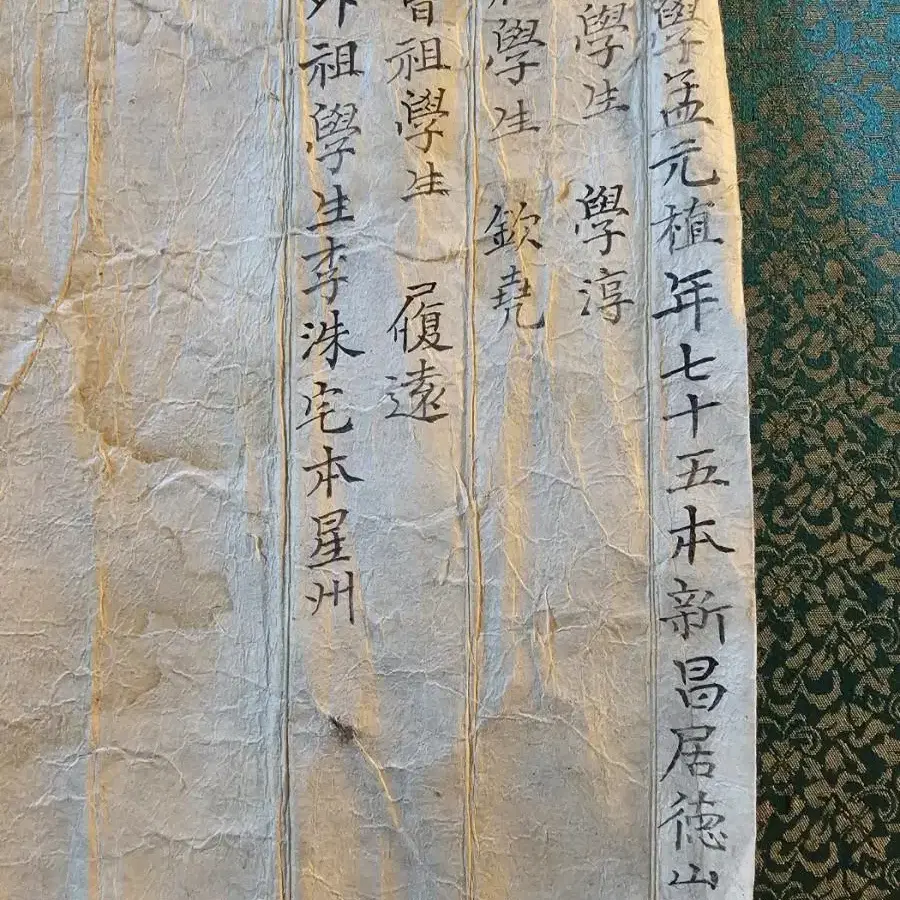 學孟元植年七十五本新昌居德山
學生 學淳
學生 欽堯
曾祖學生 履遠
外祖學生李洙宅本星州